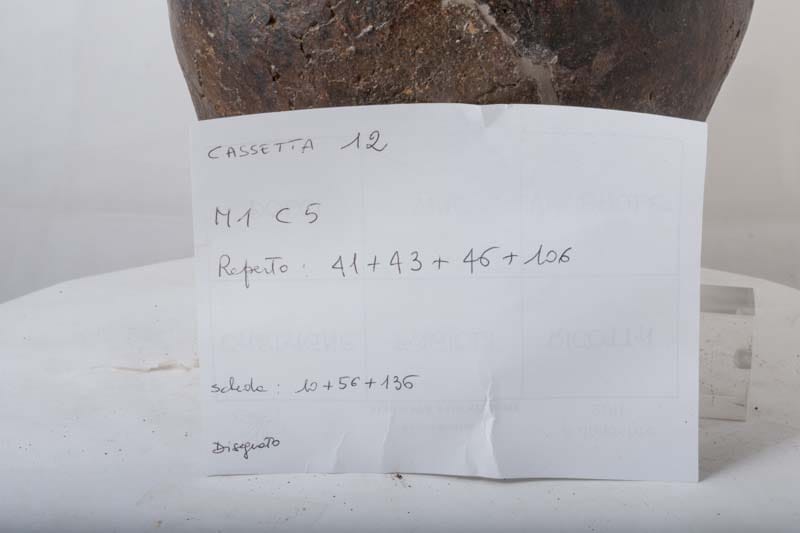 CASSETTA 12
M1 C5
Reperto: 41+43+46+106
scheda: 10+56+136
Disegnato